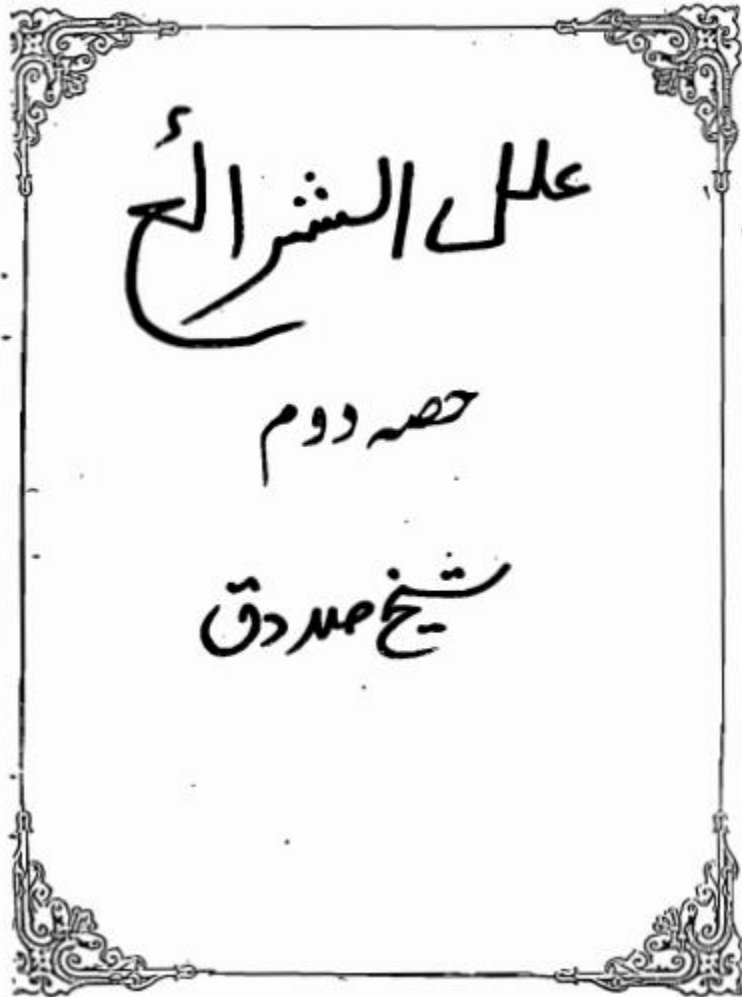 علل الشرائع
حصہ دوم
شیخ صدوق